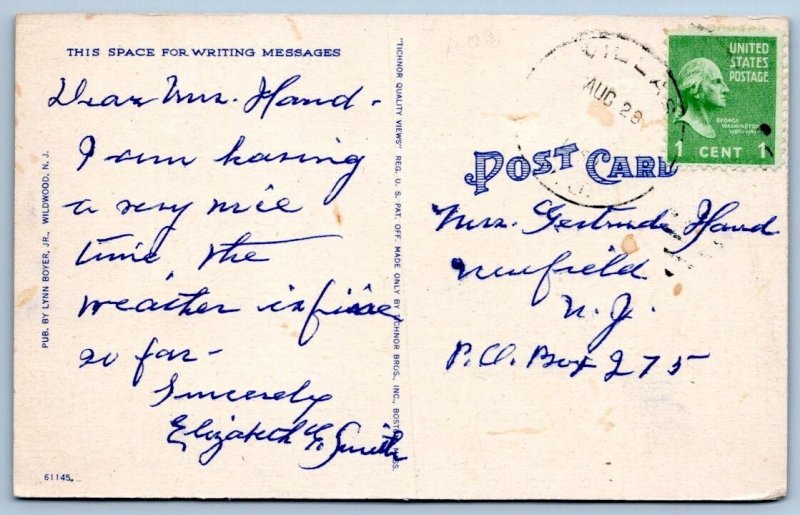 THIS SPACE FOR WRITING MESSAGES
Dear Mrs. Hand -
I am having
a very nice
time, the
weather is fine
so far -
Sincerely
Elizabeth G. Smith
61145.
PUB. BY LYNN BOYER, JR., WILDWOOD, N. J.
"TICHNOR QUALITY VIEWS" REG. U. S. PAT. OFF. MADE ONLY BY TICHNOR BROS., INC., BOSTON, MASS.
VILLAS
AUG 28
UNITED
STATES
POSTAGE
GEORGE
WASHINGTON
1 CENT 1
POST CARD
Mrs. Gertrude Hand
Newfield
N. J.
P.O. Box 275